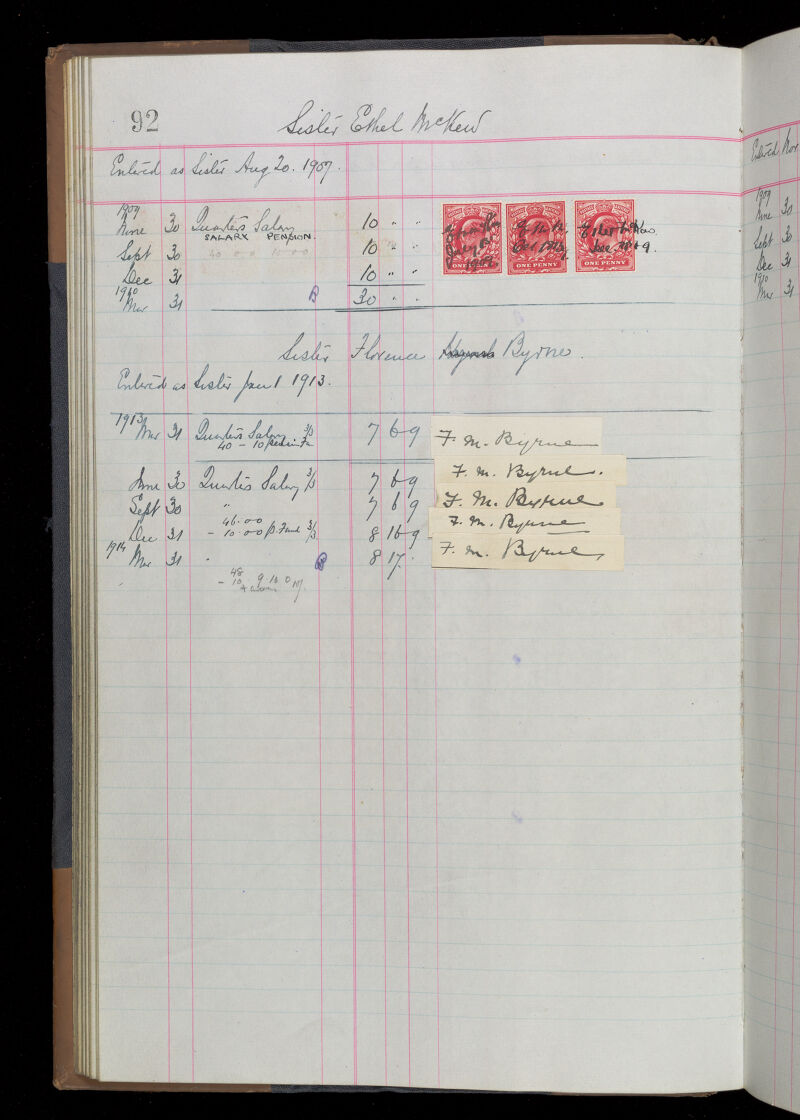 92
Sister Ethel McKew
Entered as Sister Aug 20. 1907.
1909
June 30 Quarters Salary 10 " "
SALARY PENSION.
Sept 30 10 " "
40 0 0 10 0 0
Dec 31 10 " "
1910
Mar 31 B 30 " "
ONE PENNY ONE PENNY ONE PENNY
Sister Florence Byrne.
Entered as Sister Jan 1 1913.
1913
Mar 31 Quarters Salary 3/3 7 6 9 F. M. Byrne
40 - 10
June 30 Quarters Salary 3/3 7 6 9 F. M. Byrne.
Sept 30 " 7 6 9 F. M. Byrne
46.00
Dec 31 - 10.00 P. Fund 3/3 8 16 9 F. M. Byrne
1914
Mar 31 " B 8 17 F. M. Byrne
48
- 10
Entered Nov
1909
June 30
Sept 30
Dec 31
1910
Mar 31